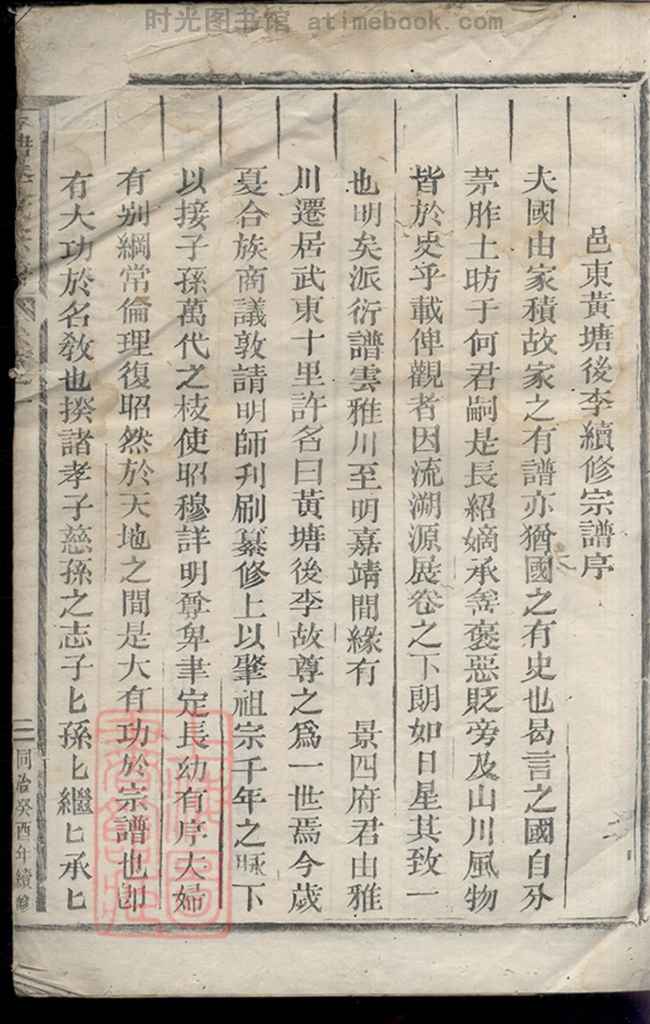 时光图书馆 atimebook.com
邑東黃塘後李續修宗譜序
夫國由家積故家之有譜亦猶國之有史也曷言之國自分
茅胙土昉于何君嗣是長紹嫡承善褒惡貶旁及山川風物
皆於史乎載俾觀者因流溯源展卷之下朗如日星其致一
也明矣派衍譜雲雅川至明嘉靖間緣有 景四府君由雅
川遷居武東十里許名曰黃塘後李故尊之爲一世焉今歲
夏合族商議敦請明師刋刷纂修上以肇祖宗千年之脉下
以接子孫萬代之枝使昭穆詳明尊卑聿定長幼有序夫婦
有别綱常倫理復昭然於天地之間是大有功於宗譜也卽
有大功於名敎也揆諸孝子慈孫之志子匕孫匕繼匕承匕
同治癸酉年續修